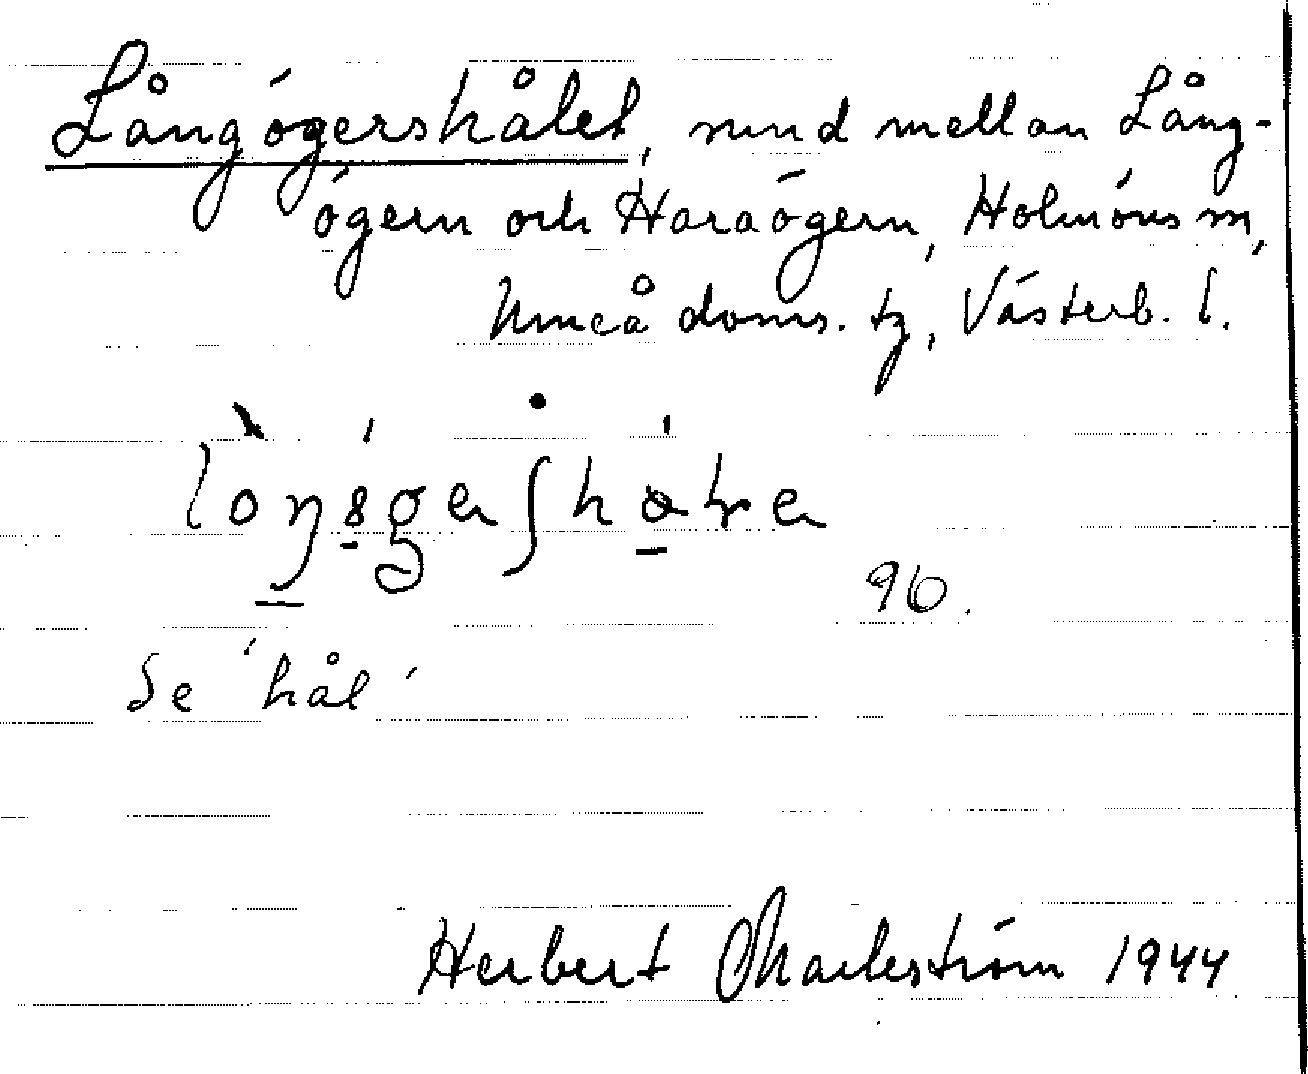 Långögershålet, sund mellan Lång-
ögern och Haraögern, Holmöns sn,
Umeå doms. tg, Västerb. l.
90.
Se 'hål'
Herbert Markström 1944